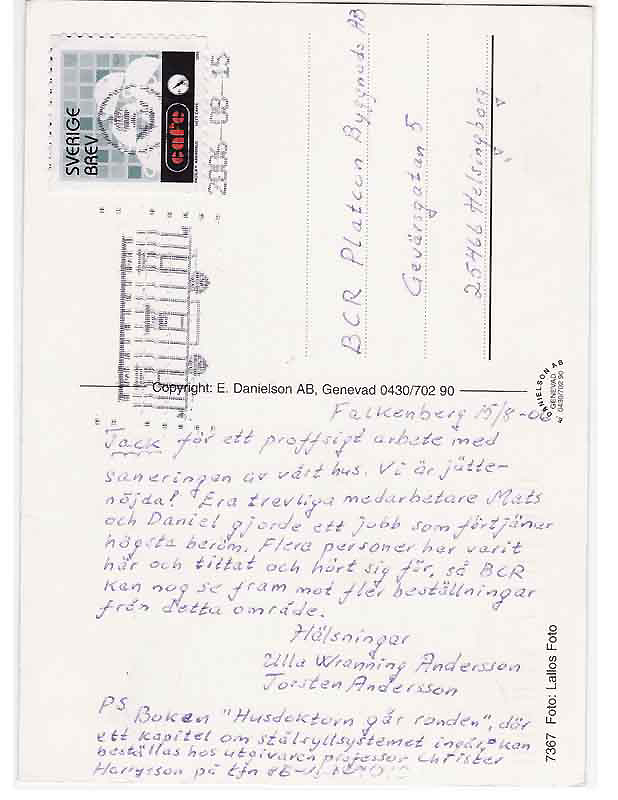 SVERIGE
BREV
cafe
2006-08-15
BCR Platcon Byggnads AB
Gevärsgatan 5
25466 Helsingborg
Copyright: E. Danielson AB, Genevad 0430/702 90
DANIELSON AB
GENEVAD
0430/702 90
Falkenberg 15/8-06
Tack för ett proffsigt arbete med
saneringen av vårt hus. Vi är jätte-
nöjda! Era trevliga medarbetare Mats
och Daniel gjorde ett jobb som förtjänar
högsta beröm. Flera personer har varit
här och tittat och hört sig för, så BCR
kan nog se fram mot fler beställningar
från detta område.
Hälsningar
Ulla Wranning Andersson
Torsten Andersson
PS Boken "Husdoktorn går ronden", där
ett kapitel om stålsyllsystemet ingår, kan
beställas hos utgivaren professor Christer
Harrysson på tfn
7367 Foto: Lallos Foto